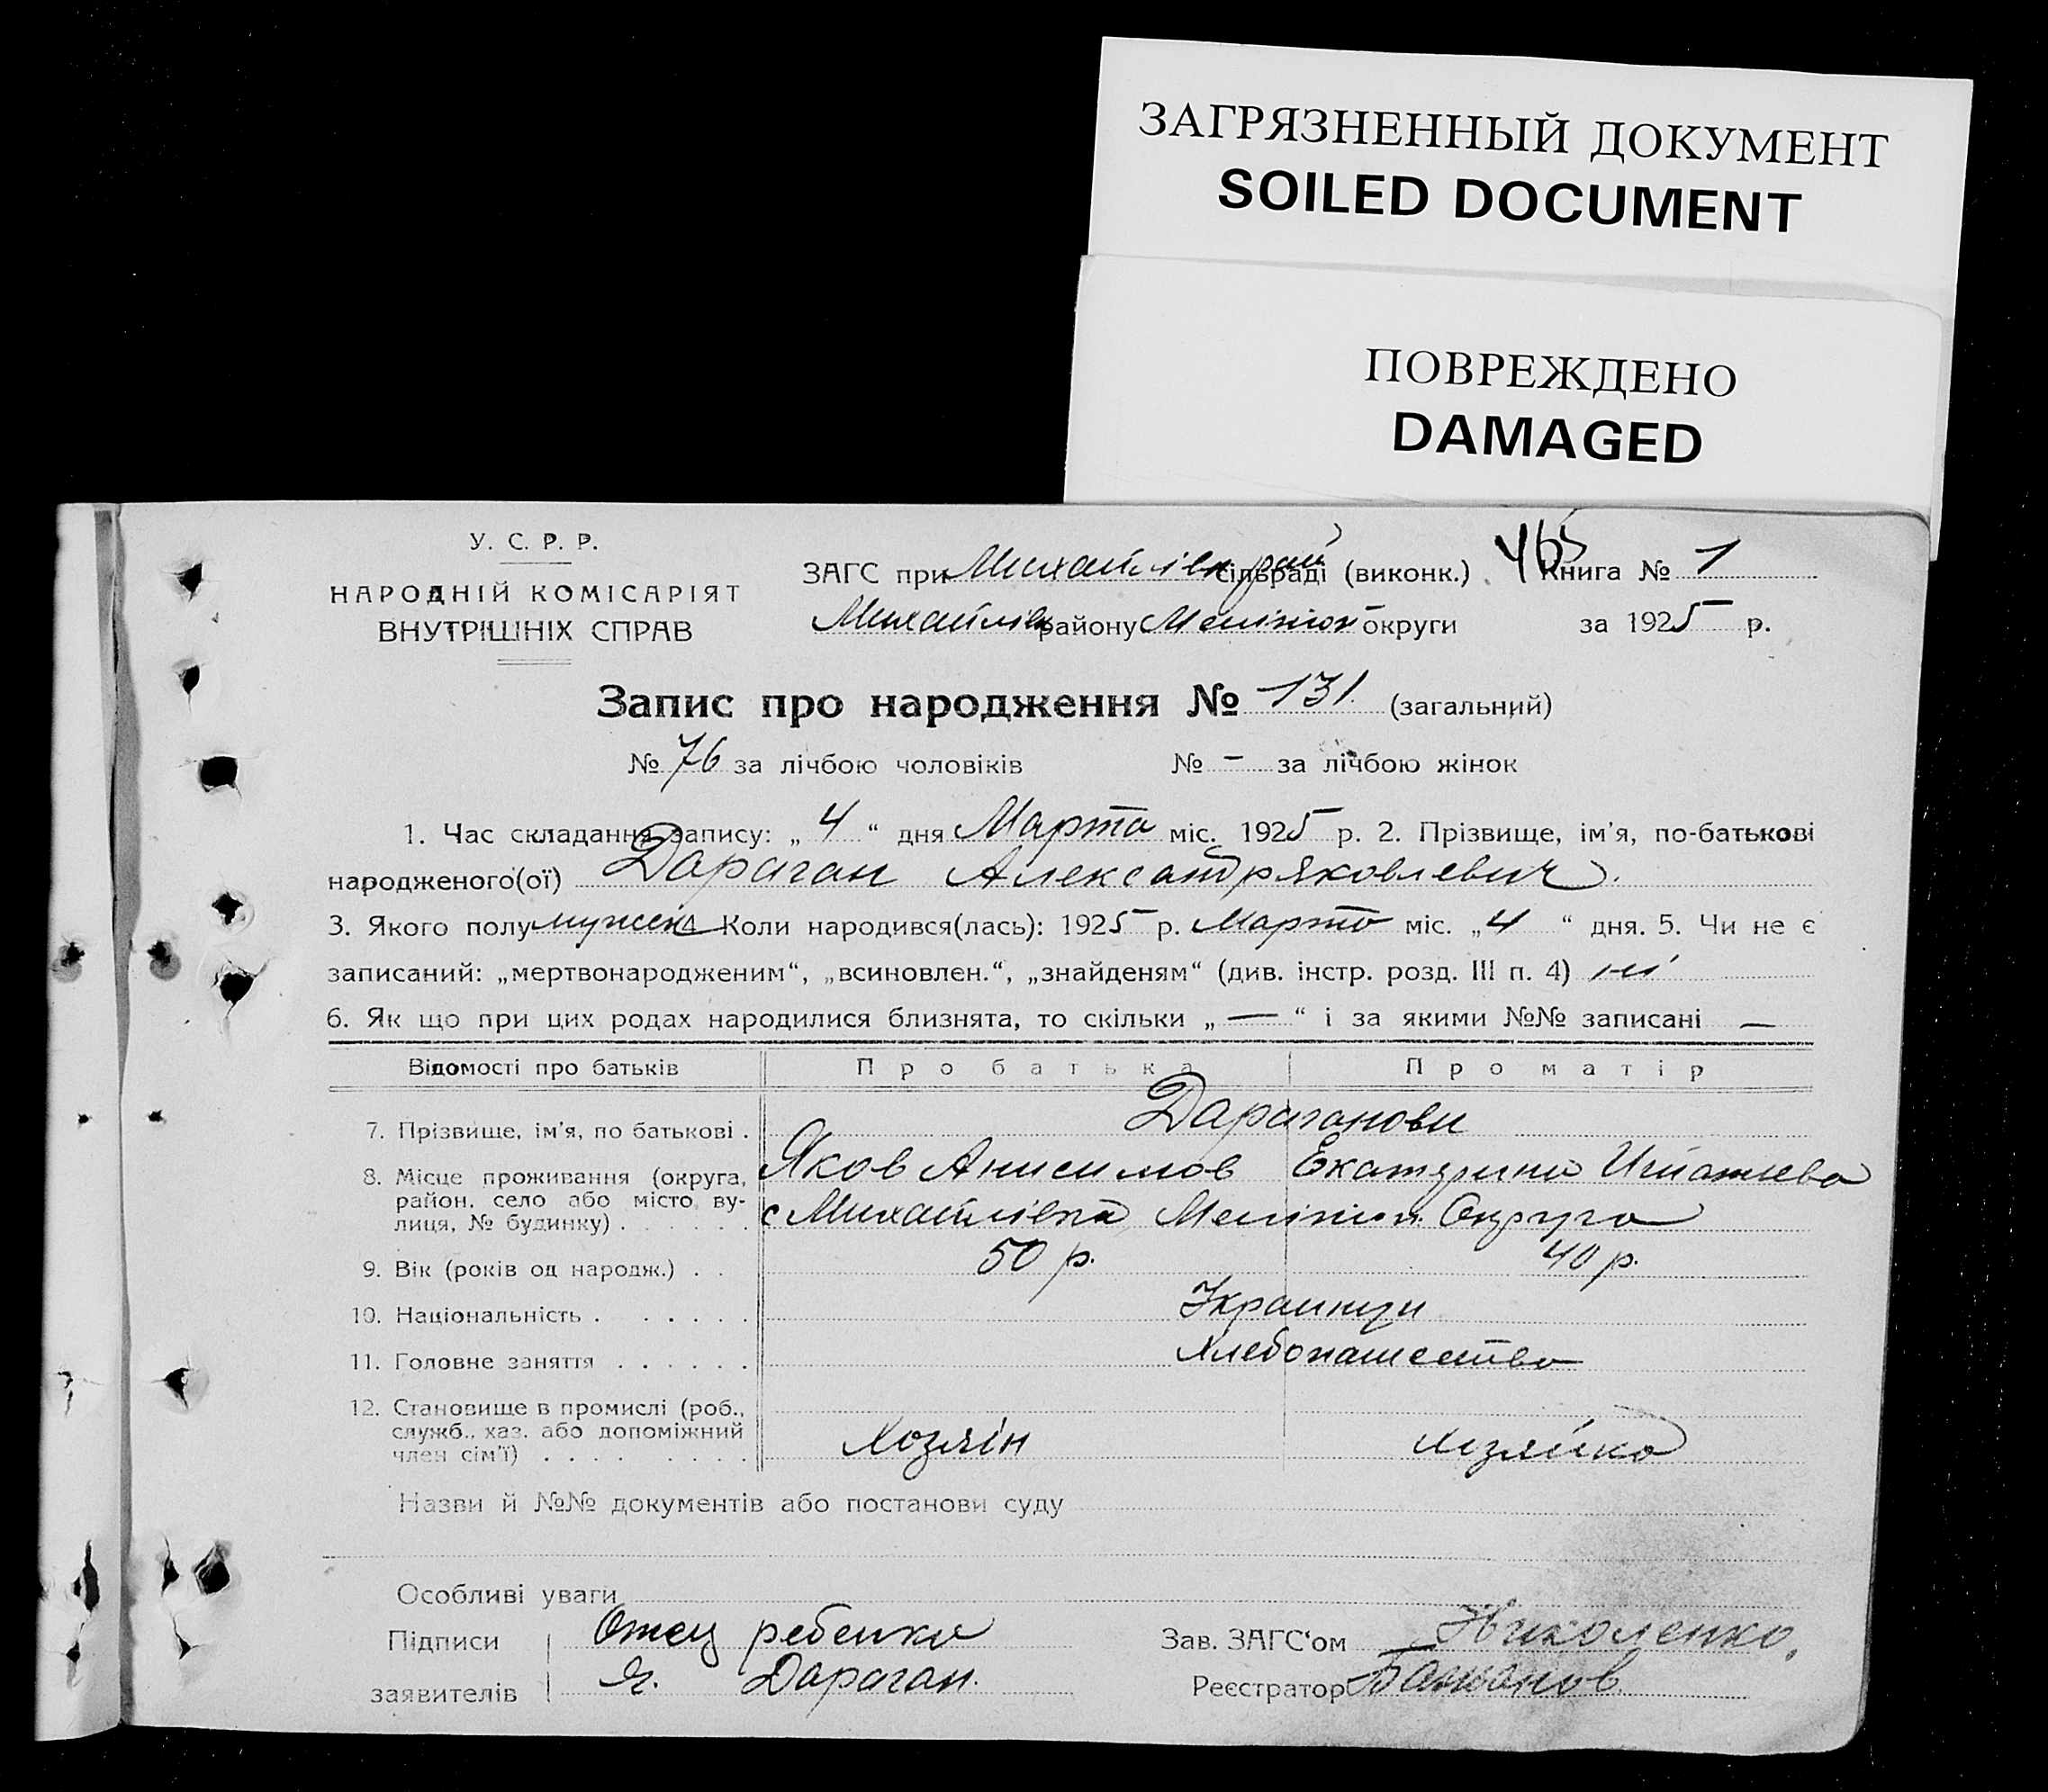 ЗАГРЯЗНЕННЫЙ ДОКУМЕНТ
SOILED DOCUMENT
ПОВРЕЖДЕНО
DAMAGED
У. С. Р. Р.
НАРОДНІЙ КОМІСАРІЯТ
ВНУТРІШНІХ СПРАВ
ЗАГС при Михайлівк рай сільраді (виконк.) 465 Книга № 1
Михайлівк району Мелітоп округи за 1925 р.
Запис про народження № 131 (загальний)
№ 76 за лічбою чоловіків № – за лічбою жінок
1. Час складання запису: „ 4 “ дня Марта міс. 1925 р. 2. Прізвище, ім’я, по-батькові
народженого(ої) Дараган Александр Яковлевич.
3. Якого полу мужск 4 Коли народився(лась): 1925 р. Марта міс. „4 “ дня. 5. Чи не є
записаний: „мертвонародженим“, „всиновлен.“, „знайденям“ (див. інстр. розд. III п. 4) ні
6. Як що при цих родах народилися близнята, то скільки „ — “ і за якими №№ записані —
Відомості про батьків Про батька Про матір
7. Прізвище, ім’я, по батькові . Дарагановы
8. Місце проживання (округа, Яков Анисимов Екатерина Игнатьева
район, село або місто ву-
лиця, № будинку) . . . . . . с Михайлівка Мелітоп. Округа
9. Вік (років од народж.) . . 50 р. 40 р.
10. Національність . . . . . . Украинцы
11. Головне заняття . . . . . . Хлебопашество
12. Становище в промислі (роб.,
служб., хаз. або допоміжний
член сім’ї) . . . . . . . . Хозяін хозяйка
Назви й №№ документів або постанови суду
Особливі уваги
Підписи Отец ребенка Зав. ЗАГС‘ом Николенко.
заявителів Я. Дараган. Реєстратор